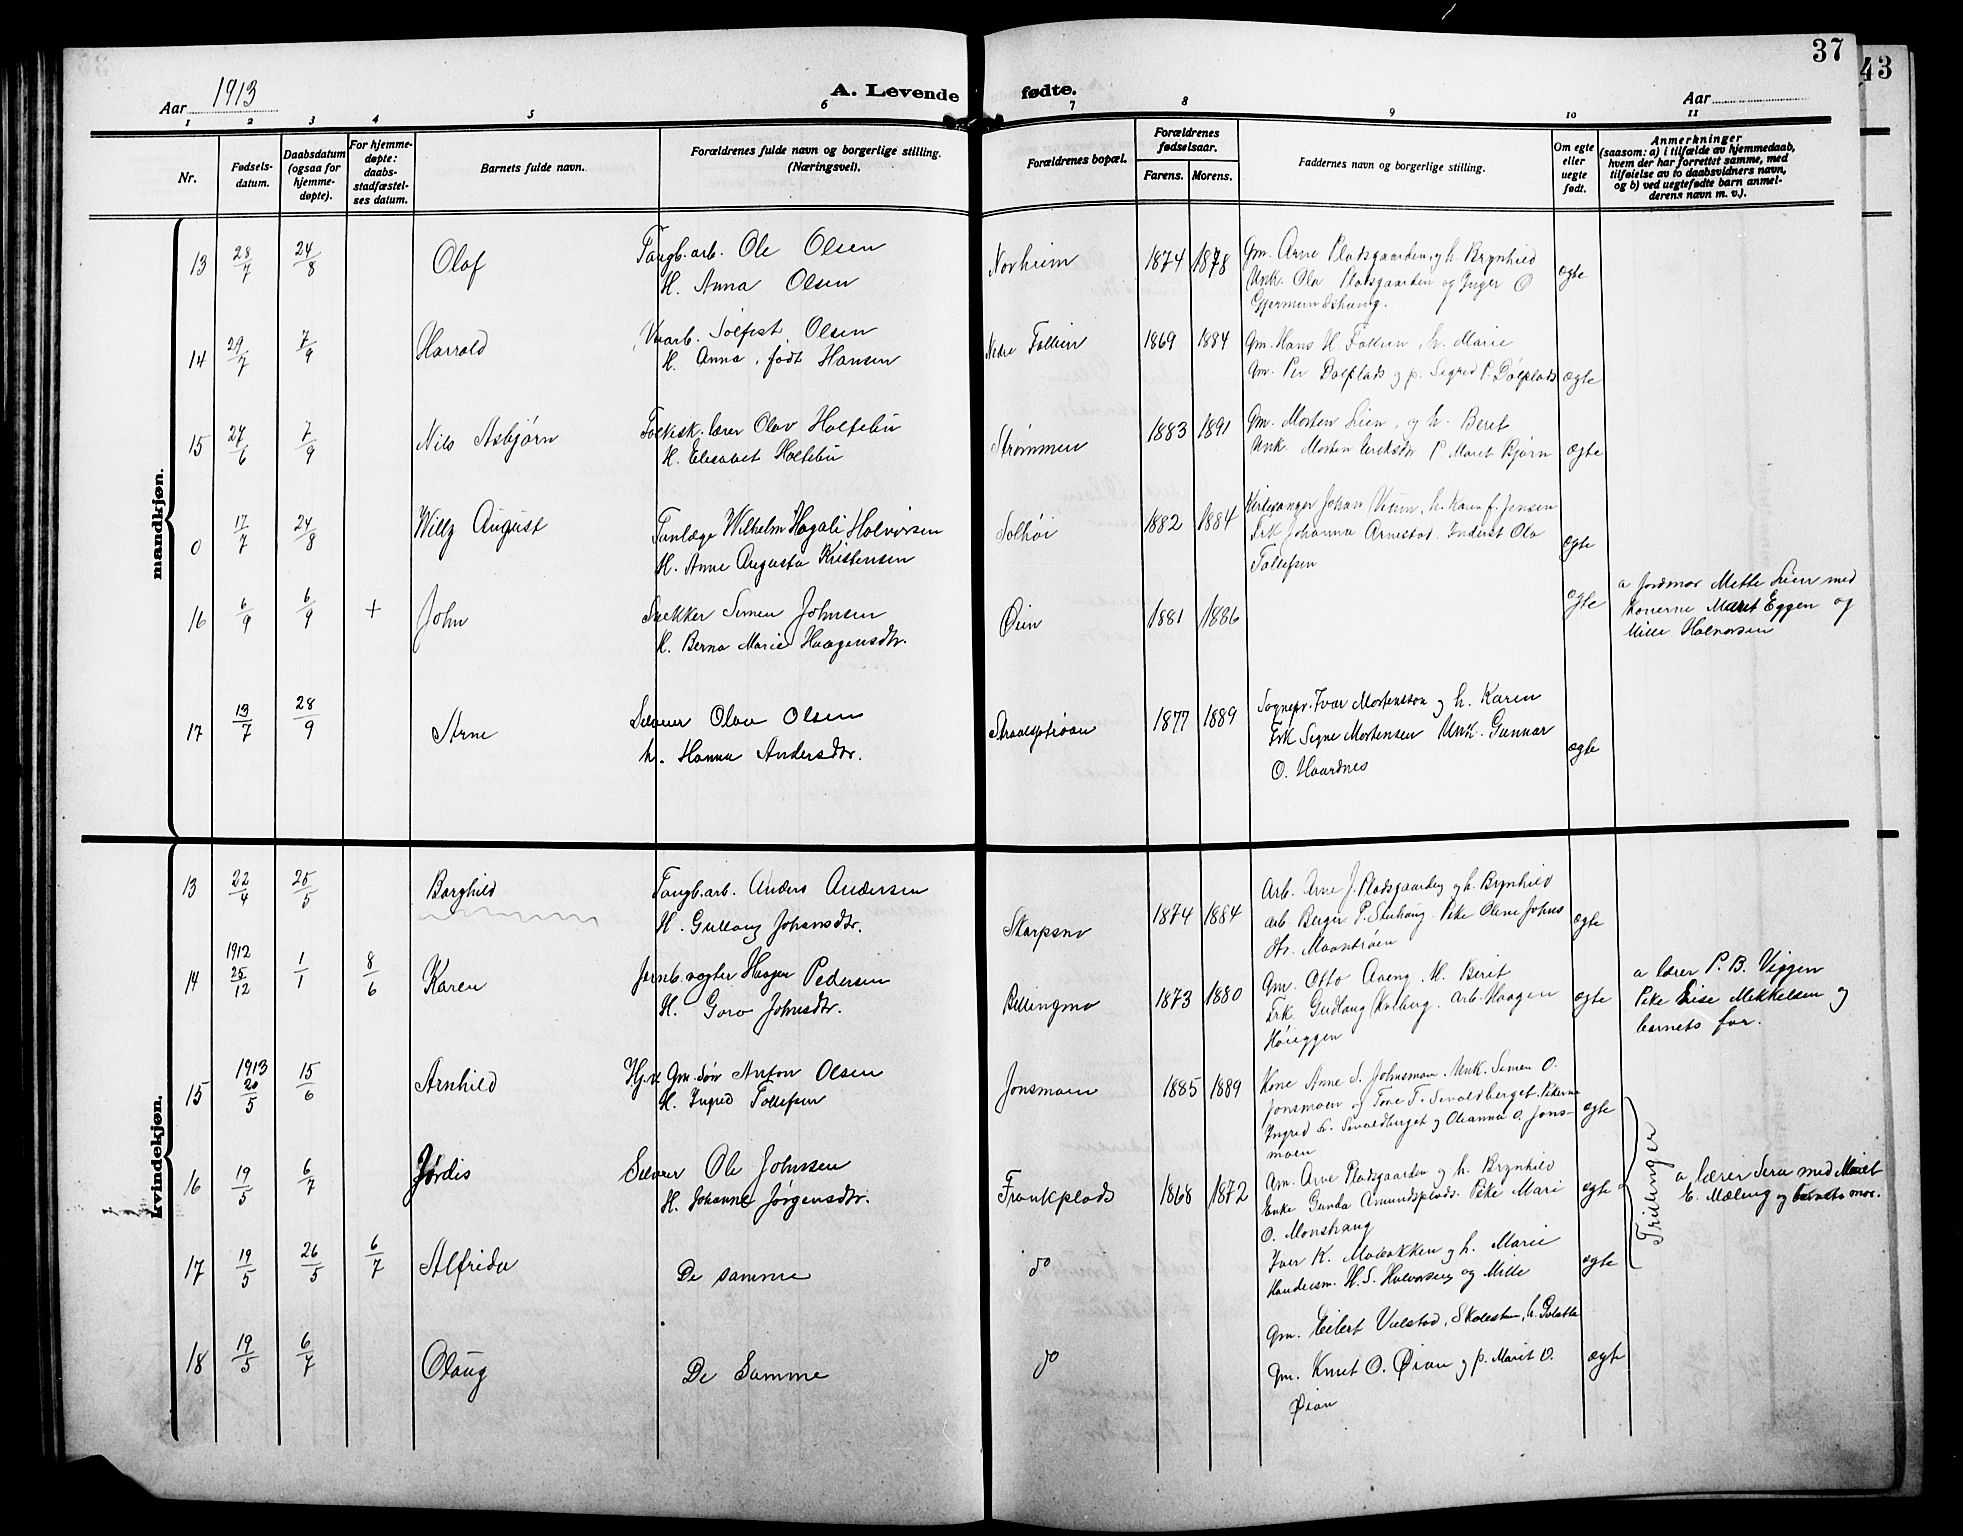 37
43
Aar 1913
A. Levende fødte.
Aar
1 2 3 4 5 6 7 8 9 10 11
Nr.
Fødsels-
datum.
Daabsdatum
(ogsaa for
hjemme-
døpte).
For hjemme-
døpte:
daabs-
stadfæstel-
ses datum.
Barnets fulde navn.
Forældrenes fulde navn og borgerlige stilling.
(Næringsvei).
Forældrenes bopæl.
Forældrenes
fødselsaar.
Farens. Morens.
Faddernes navn og borgerlige stilling.
Om egte
eller
uegte
født.
Anmerkninger
(saasom: a) i tilfælde av hjemmedaab,
hvem der har forrettet samme, med
tilføielse av to daabsvidners navn,
og b) ved uegtefødte barn anmel-
derens navn m. v.).
mandkjøn.
13 28/7 24/8 Olaf Taugb.arb. Ole Olsen Norheim 1874 1878 Gm. Arne Pladsgaarden, g h. Brynhild ægte
H. Anna Olsen Unk. Ola Pladsgaarden og Inger O
Gjermundshaug.
14 29/7 7/9 Harrald Vearb. Solfest Olsen Nedre Follien 1869 1884 Gm. Hans H. Follien h. Marie
H. Anna, født Hansen Gm. Per Dølplads og p. Sigrid P. Dølplads ægte
15 27/6 7/9 Nils Asbjørn Folkesk. lærer Olav Holtebu Strømmen 1883 1891 Gm. Morten Lien, og h. Beret
H. Elisabet Holtebu Unk. Morten P. Maret Bjørn ægte
0 17/7 24/8 Willy August Tanlæge Wilhelm Hagali Halvorsen Solhøi 1882 1884 Kirkesanger Johan Vium, h. Karen f. Jensen
H. Anne Augusta Kristensen Frk Johanna Arnestad. Inderst Ola ægte
Tollefsen
16 6/9 6/9 + John Snekker Simen Johnsen Øien 1881 1886 ægte a Jordmor Mette Lien med
H. Berna Marie Haagensdtr. Konerne Maret Eggen og
Mille Halvorsen
17 13/7 28/9 Arne Selveier Olav Olsen 1877 1889 Sognepr. Ivar Mortensson og h. Karen
h. Hanna Andersdtr. Frk Signe Mortensen Unk. Gunnar ægte
O. Haardnes
kvindekjøn.
13 22/4 25/5 Borghild Taugb.arb. Anders Andersen Skarpsno 1874 1884 Arb. Arne J. Pladsgaarden g h. Brynhild
H. Gullaug Johansdtr. Arb. Berger P. Stuhaug. Pike Oline Johns ægte
dtr. Maantrøen
14 1912 25/12 1/1 8/6 Karen Jernb.vogter Haagen Pedersen Bellingmo 1873 1880 Gm. Otto Aaeng. H. Berit ægte a lærer P. B. Viggen
H. Goro Johnsdtr. Frk. Gudlaug Kolberg. Arb. Haagen Pike Lise Mikkelsen og
Høieggen barnets far.
15 1913 20/5 15/6 Arnhild Gm. søn Anton Olsen Jonsmoen 1885 1889 Kone Anne S. Johnsmoen. Unk. Simen O.
H. Ingrid Tollefsen Jonsmoen og Tone T. Sevaldberget. Pikerne ægte
Ingrid S. Sevaldberget og Oleanna O. Jons-
moen
16 19/5 6/7 Jørdis Selveier Ole Johnsen Frankplads 1868 1872 Gm. Arne Pladsgaarden og h. Brynhild
H. Johanne Jørgensdtr. Enke Gunda Amundsplads. Pike Mari ægte a lærer Sera med Maret
O. Monshaug E. Mæling og barnets mor.
17 19/5 26/5 6/7 Alfrida De samme do Iver K. Moløkken og h. Marie ægte
Handelsm. H. S. Halvorsen og Mille
18 19/5 6/7 Olaug De Samme do Gm. Eilert Vulstad,
Gm. Knut O. Øian og p. Marit O. ægte
Øian
Trillinger